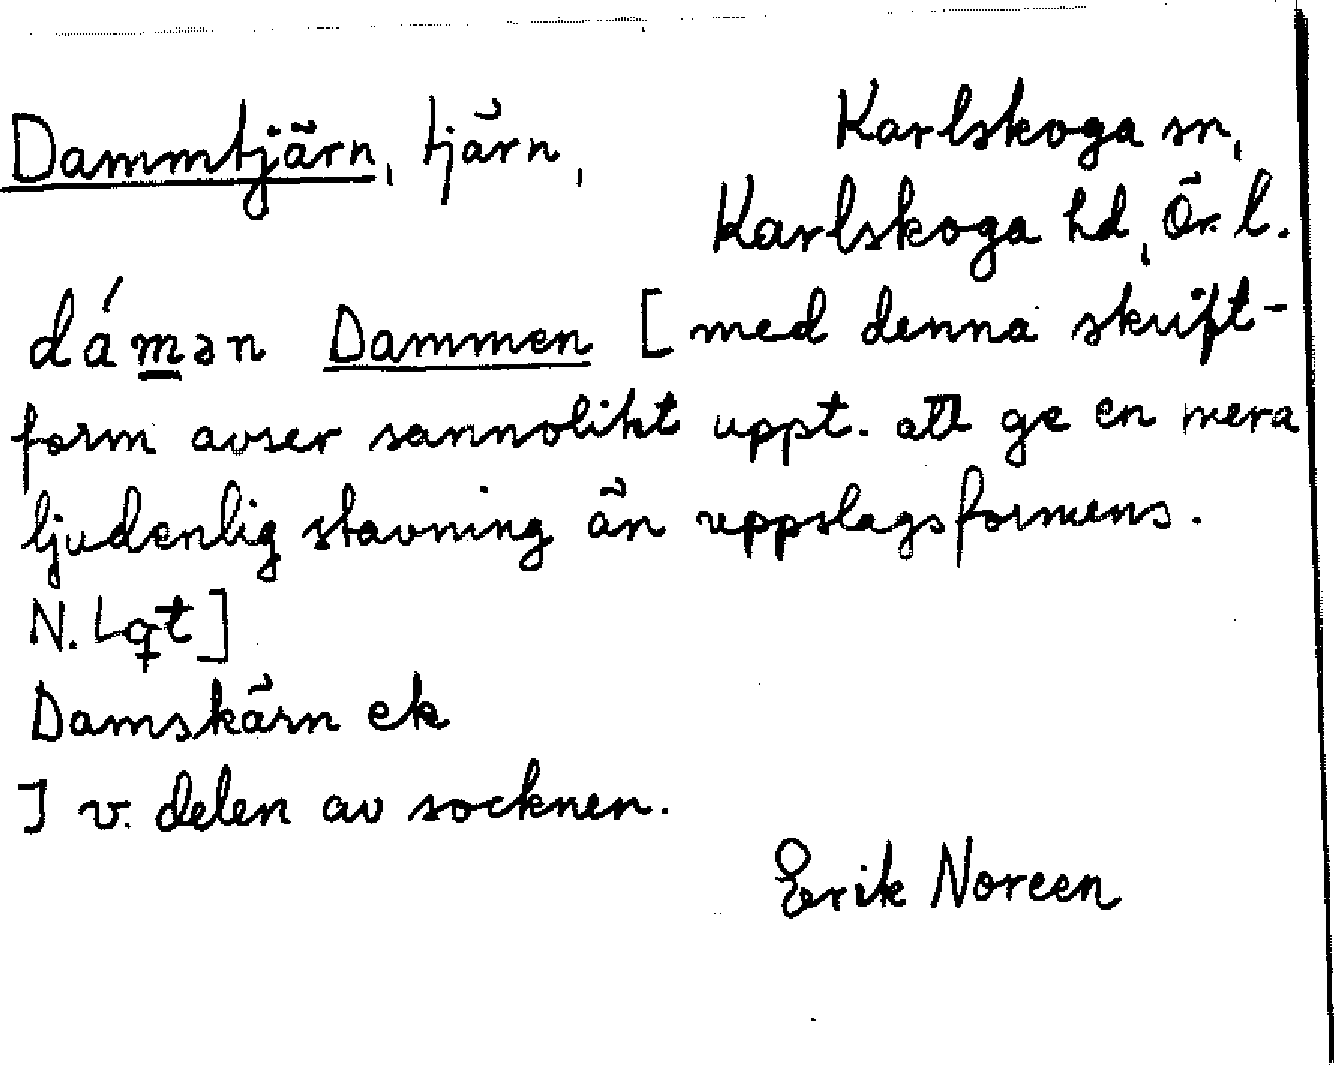 Dammtjärn, tjärn, Karlskoga sn,
Karlskoga hd, Ör. l.
dámən Dammen [med denna skrift-
form avser sannolikt uppt. att ge en mera
ljudenlig stavning än uppslagsformens.
N. Lqt]
Damskärn ek
I v. delen av socknen.
Erik Noreen